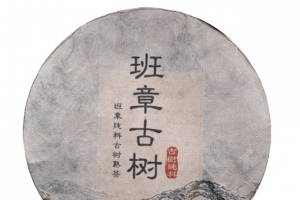 班章古树
班章纯料古树熟茶
古树纯料